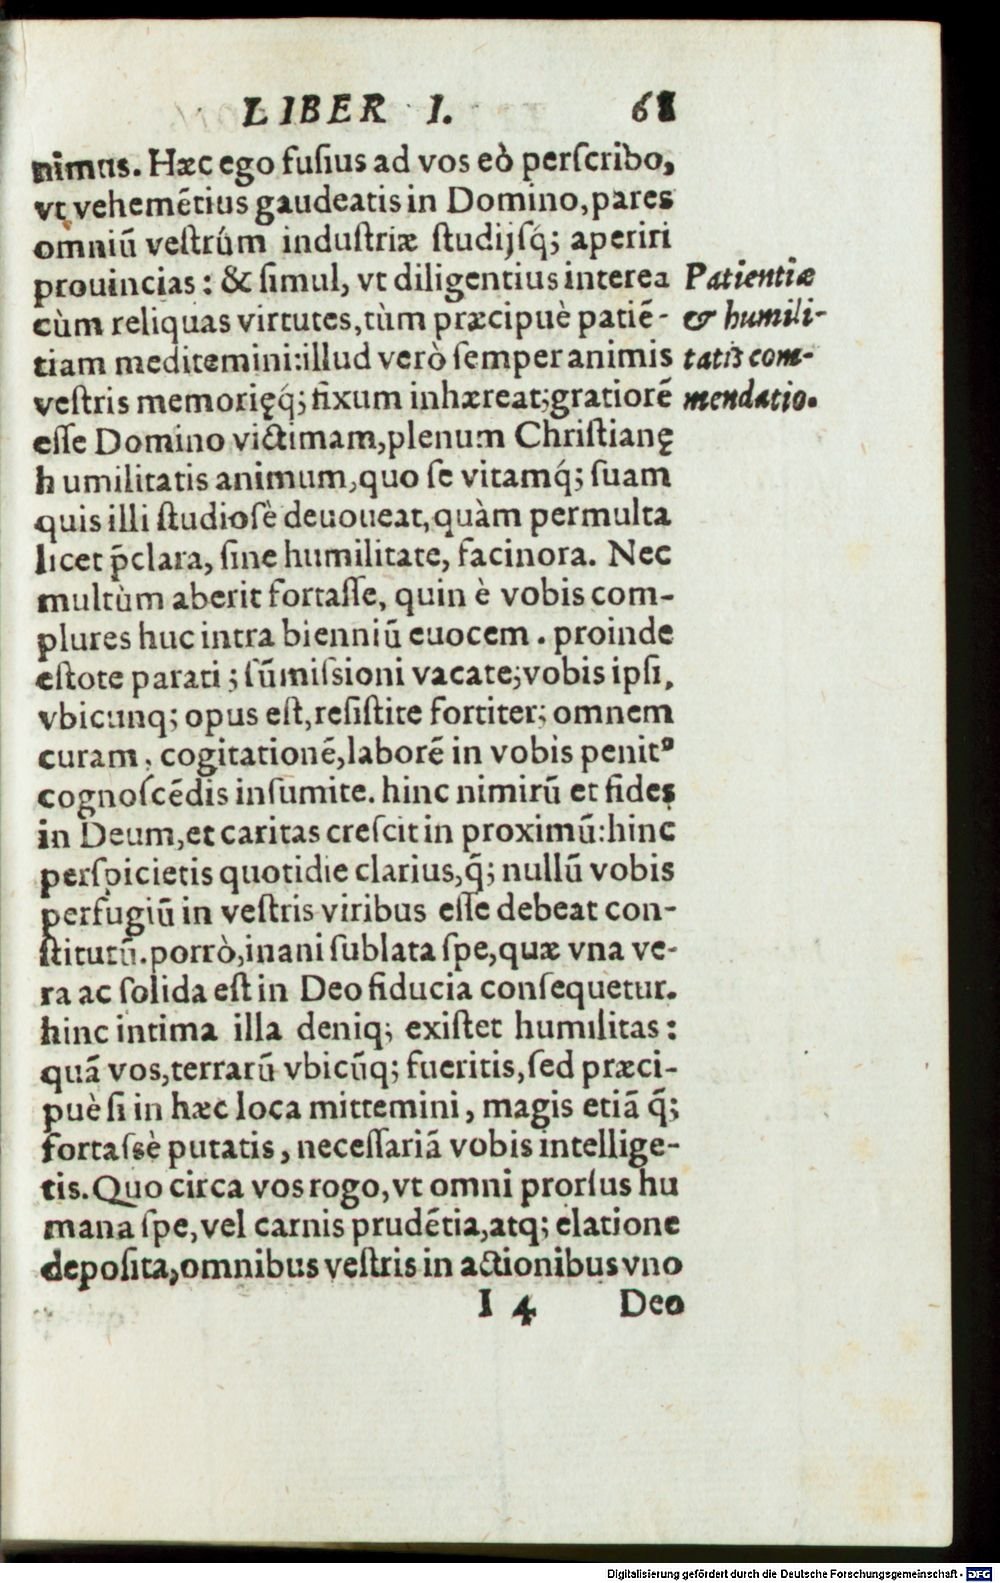 LIBER I. 68
nimus. Hæc ego fusius ad vos eò perscribo,
vt vehemẽtius gaudeatis in Domino, pares
omniũ vestrûm industriæ studijsq́; aperiri
prouincias: & simul, vt diligentius interea
cùm reliquas virtutes, tùm præcipuè patiẽ-
tiam meditemini: illud verò semper animis
vestris memorięq́; fixum inhæreat; gratiorẽ
esse Domino victimam, plenum Christianę
humilitatis animum, quo se vitamq́; suam
quis illi studiosè deuoueat, quàm permulta
licet p̃clara, sine humilitate, facinora. Nec
multùm aberit fortasse, quin è vobis com-
plures huc intra bienniũ euocem. proinde
estote parati; sũmissioni vacate; vobis ipsi,
vbicunq; opus est, resistite fortiter; omnem
curam, cogitationẽ, laborẽ in vobis penitꝰ
cognoscẽdis insumite. hinc nimirũ et fides
in Deum, et caritas crescit in proximũ: hinc
perspicietis quotidie clarius, q̃; nullũ vobis
perfugiũ in vestris viribus esse debeat con-
stitutũ. porrò, inani sublata spe, quæ vna ve-
ra ac solida est in Deo fiducia consequetur.
hinc intima illa deniq; existet humilitas:
quã vos, terrarũ vbicũq; fueritis, sed præci-
puè si in hæc loca mittemini, magis etiã q̃;
fortassè putatis, necessariã vobis intellige-
tis. Quo circa vos rogo, vt omni prorsus hu
mana spe, vel carnis prudẽtia, atq; elatione
deposita, omnibus vestris in actionibus vno
I 4 Deo
Patientiæ
& humili-
tatis com-
mendatio.
Digitalisierung gefördert durch die Deutsche Forschungsgemeinschaft - DFG